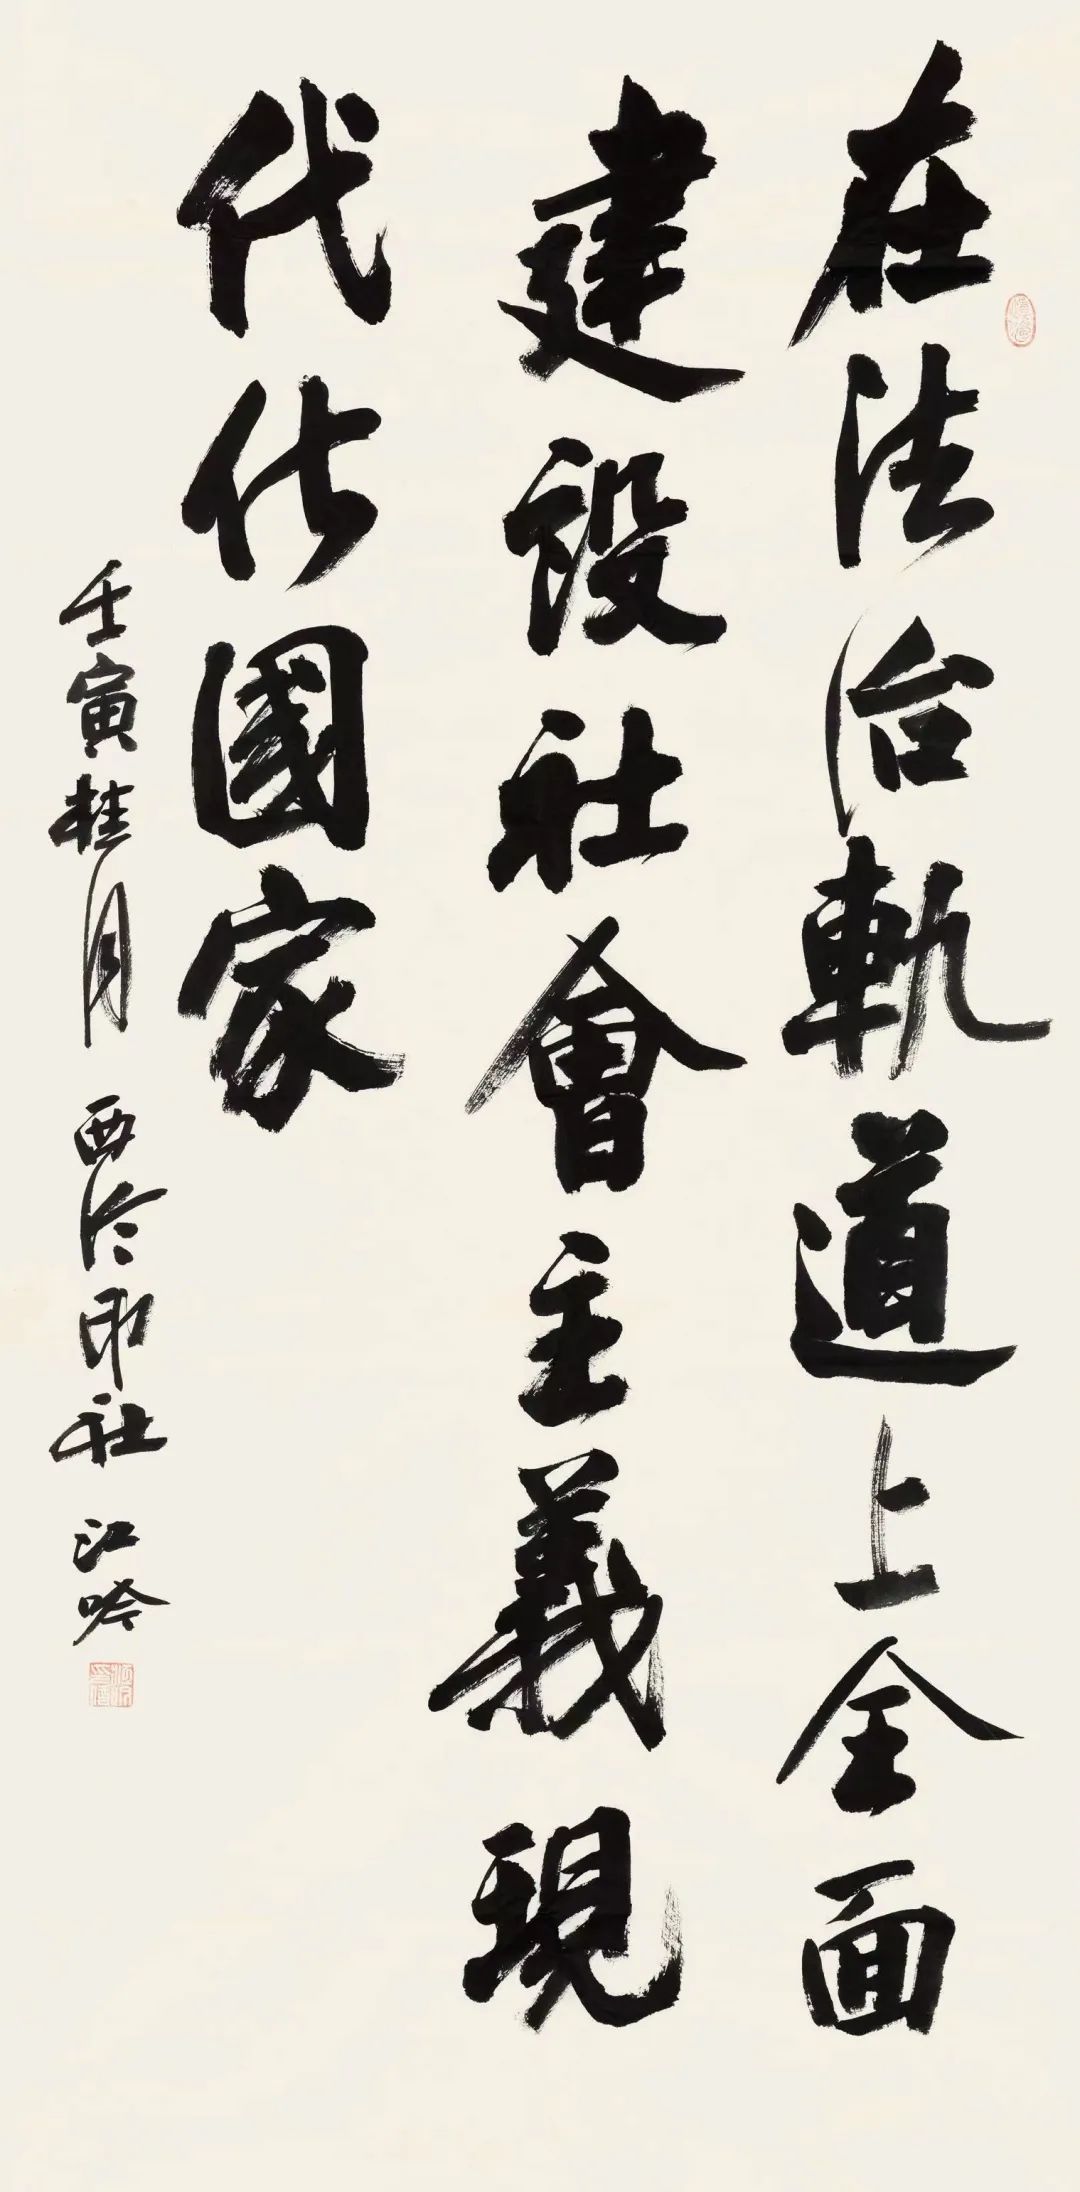 在法治軌道上全面
建設社會主義現
代化國家
壬寅桂月 西泠印社 江吟